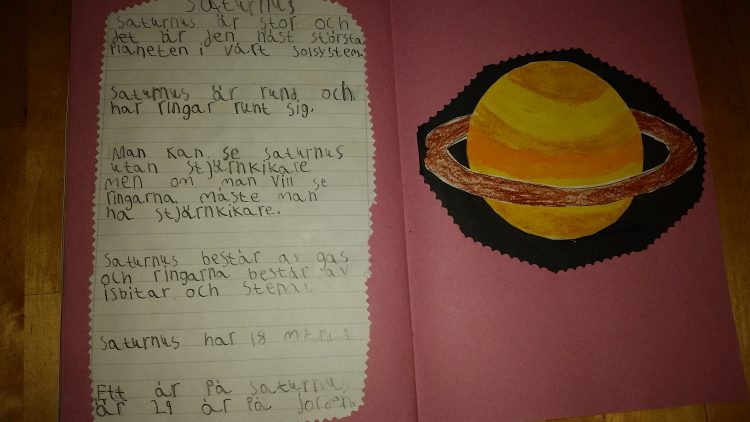 Saturnus
Saturnus är stor och
det är den näst största
Planeten i vårt solsystem.
Saturnus är rund och
har ringar runt sig.
Man kan se saturnus
utan stjärnkikare
men om man vill se
ringarna måste man
ha stjärnkikare.
Saturnus består av gas
och ringarna består av
isbitar och stenar.
Saturnus har 18 månar.
Ett år på saturnus
är 29 år på jorden.